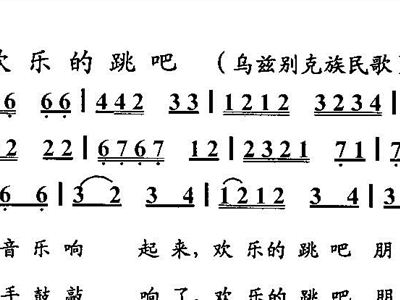 欢乐的跳吧 （乌兹别克族民歌）
6 66 | 442 33 | 1212 3234 |
2 22 | 6767 12 | 2321 71 | 7
6 6 | 3 2 3 4 | 1212 3 4 | 3
音乐响 起来，欢乐的跳吧朋
手鼓敲 响了，欢乐的跳吧朋